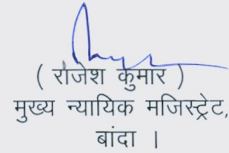 ( राजेश कुमार )
मुख्य न्यायिक मजिस्ट्रेट,
बांदा ।